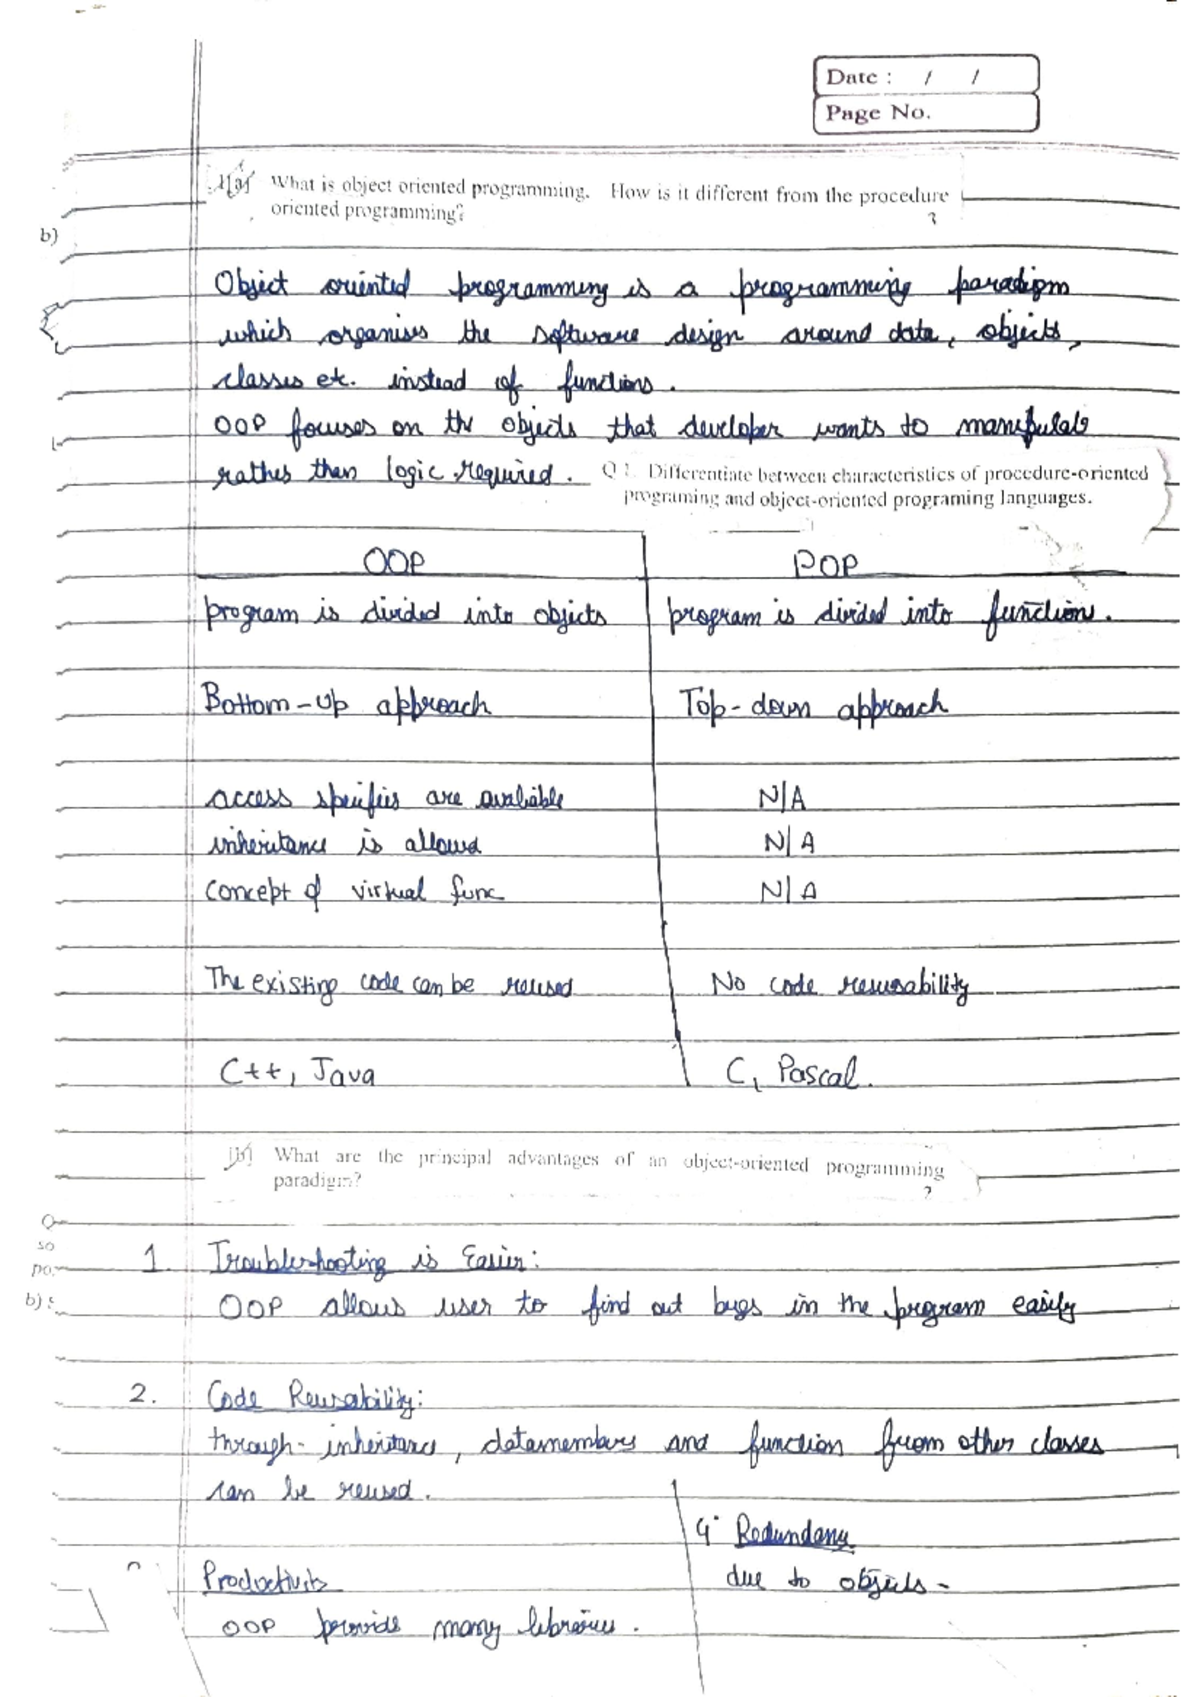 Date : / /
Page No.
1(a) What is object oriented programming. How is it different from the procedure
oriented programming?
3
b)
Object oriented programming is a programming paradigm
which organises the software design around data, objects,
classes etc. instead of functions.
OOP focuses on the objects that developer wants to manipulate
rather than logic required.
Q 1. Differentiate between characteristics of procedure-oriented
programing and object-oriented programing languages.
OOP POP
program is divided into objects program is divided into functions.
Bottom-up approach Top-down approach
access specifies are avaliable N/A
inheritance is allowed N/A
concept of virtual func N/A
The existing code can be reused No code resusability
C++, Java C, Pascal.
(b) What are the principal advantages of an object-oriented programming
paradigm?
2
so
po
b) s
1. Troubleshooting is Easier:
OOP allows user to find out bugs in the program easily
2. Code Reusability:
through inheritance, datamembers and function from other classes
can be reused.
4. Redundancy
due to objects-
Productivity
OOP provide many libraries.